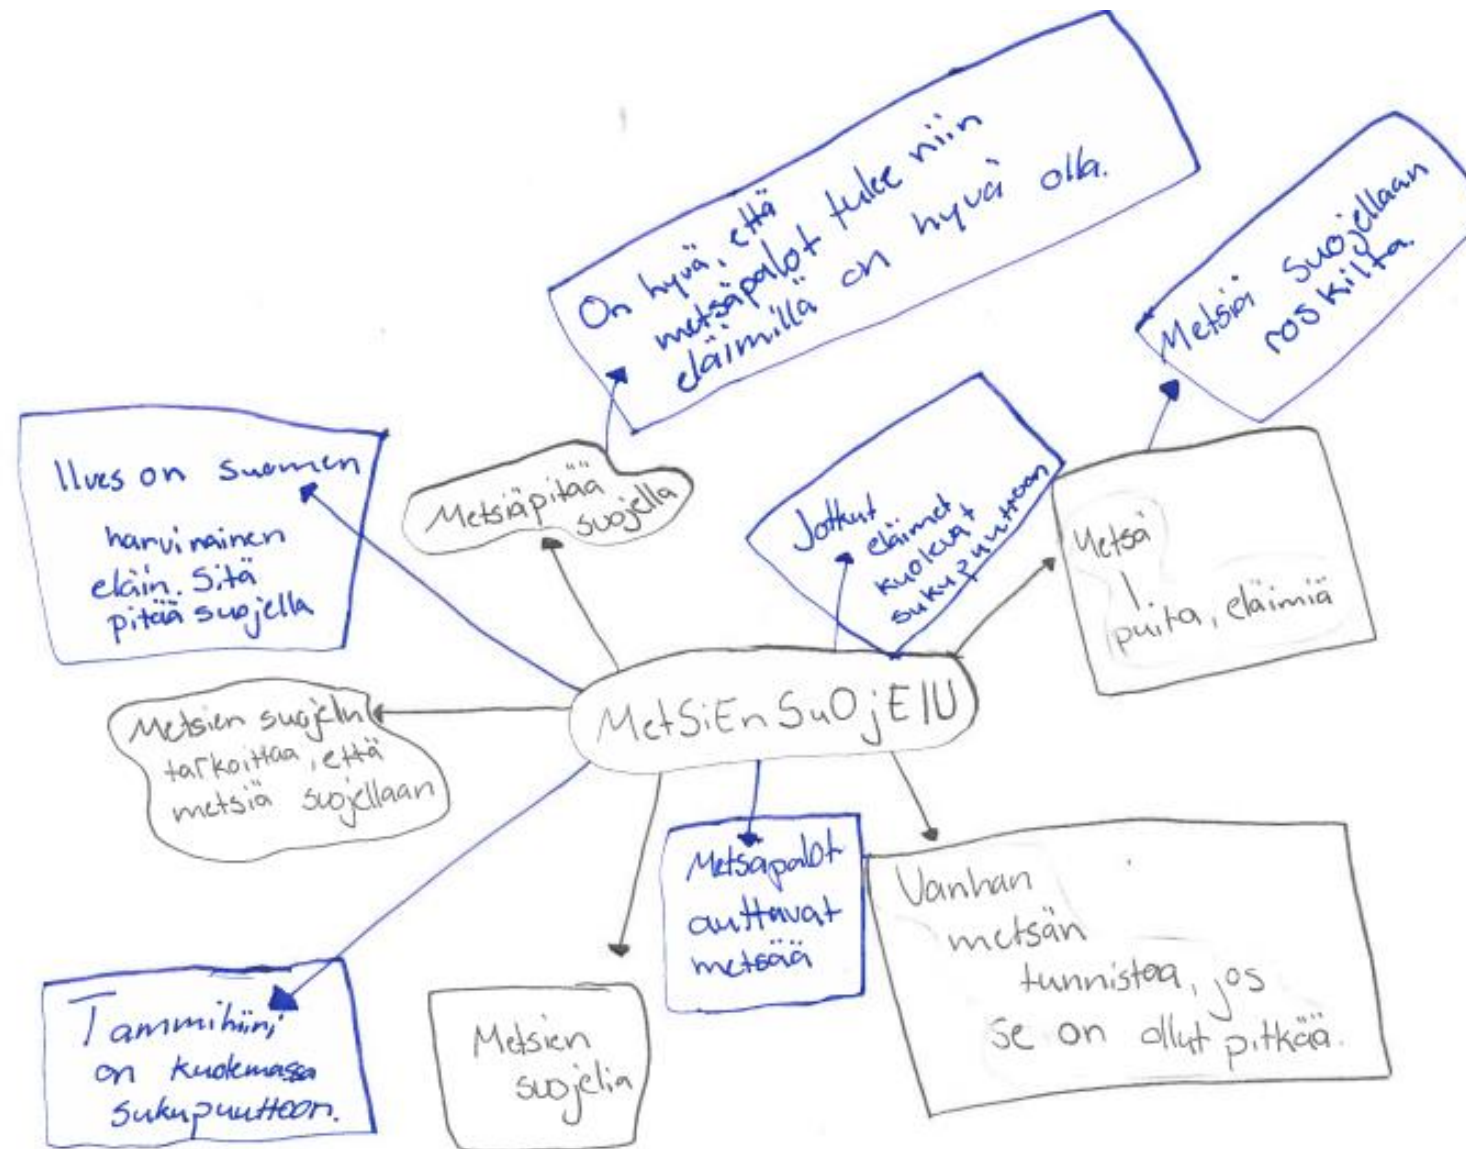 On hyvä, että
metsäpalot tulee niin
eläimillä on hyvä olla.
Metsiä suojellaan
roskilta.
Ilves on suomen
harvinainen
eläin. Sitä
pitää suojella
Metsiäpitää
suojella
Jotkut
eläimet
kuolevat
sukupuuttoon
Metsä
puita, eläimiä
MetSiEnSuOjElU
Metsien suojelu
tarkoittaa, että
metsiä suojellaan
Metsäpalot
auttavat
metsää
Vanhan
metsän
tunnistaa, jos
se on ollut pitkää.
Tammihiiri
on kuolemassa
sukupuuttoon.
Metsien
suojelia